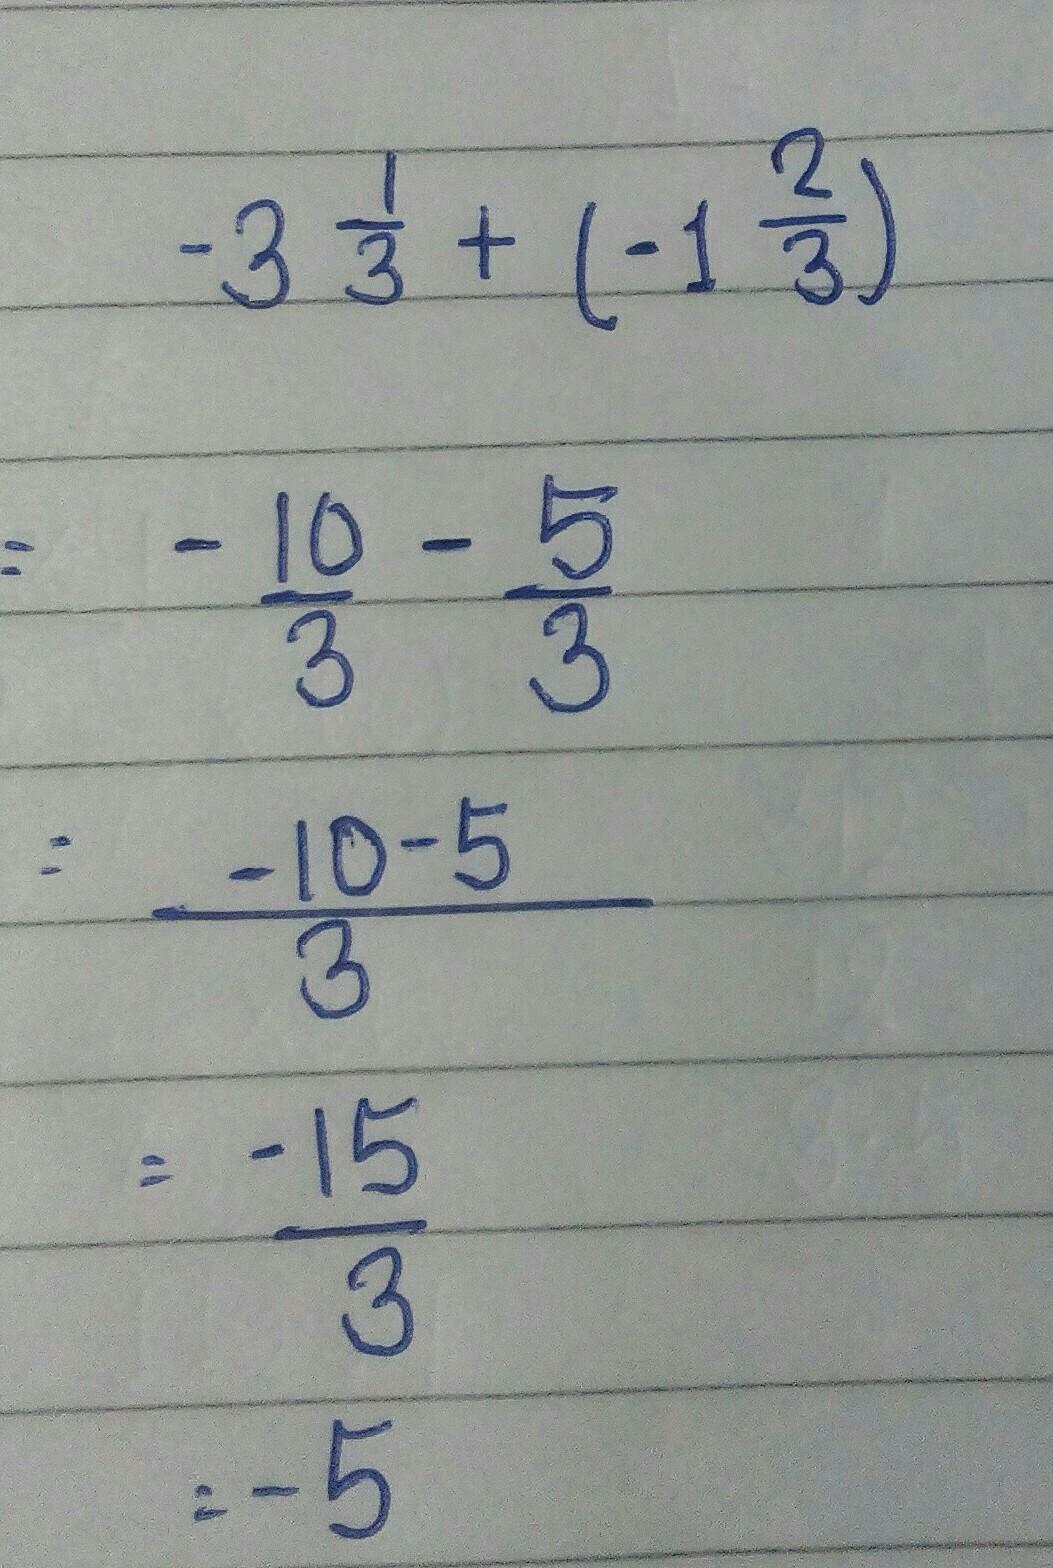 -3 1/3 + (-1 2/3)
= - 10/3 - 5/3
= -10-5/3
= -15/3
= -5